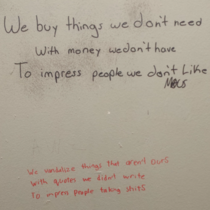 We buy things we don't need
With money we don't have
To impress people we don't like
We vandalize things that aren't ours
With quotes we didn't write
To impress people taking shits